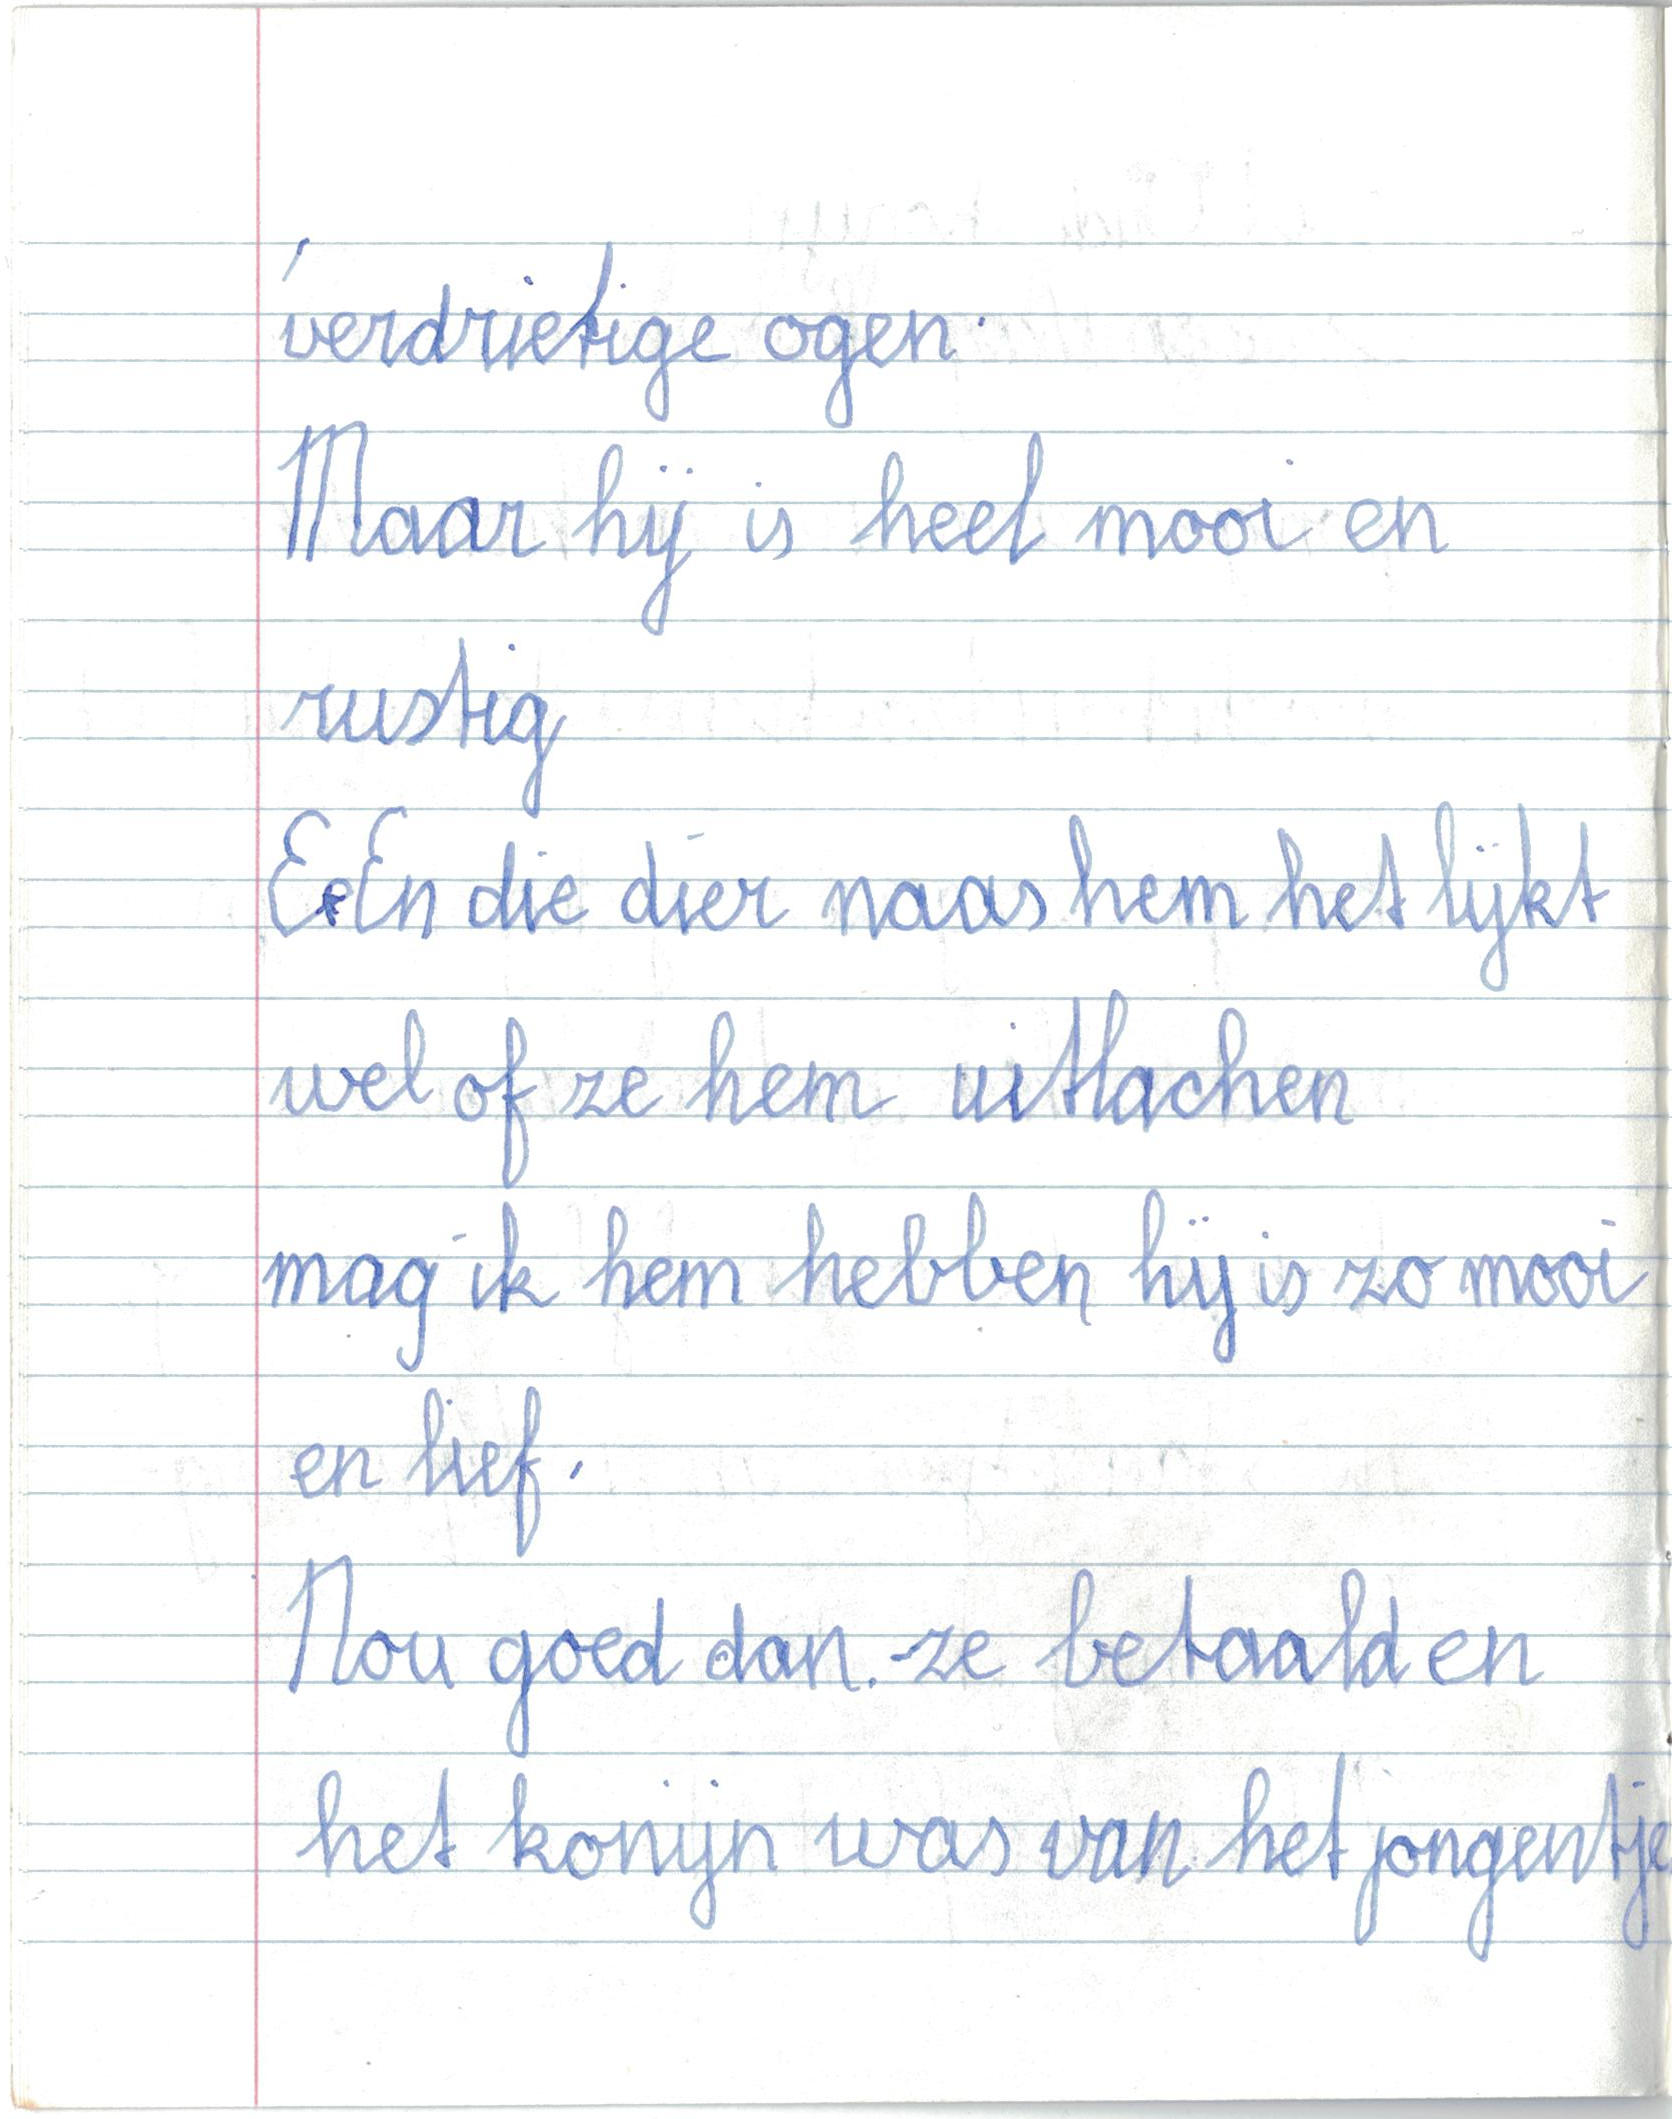 verdrietige ogen.
Maar hij is heel mooi en
rustig
EeEn die dier naas hem het lijkt
wel of ze hem uitlachen
mag ik hem hebben hij is zo mooi
en lief.
Nou goed dan. -ze betaalden
het konijn was van het jongentje